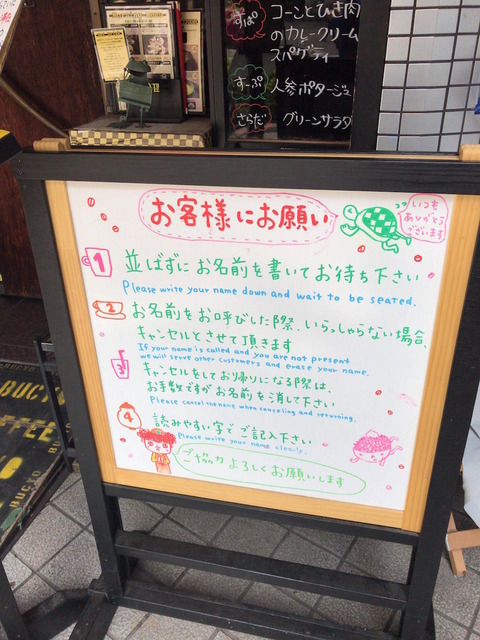 すぱ
コーンとひき肉
のカレークリーム
スパゲティ
すーぷ
人参ポタージュ
さらだ
グリーンサラダ
お客様にお願い
いつも
ありがとう
ございます
1 並ばずにお名前を書いてお待ち下さい
Please write your name down and wait to be seated.
2 お名前をお呼びした際、いらっしゃらない場合、
キャンセルとさせて頂きます
If your name is called and you are not present
we will serve other customers and erase your name.
3 キャンセルをしてお帰りになる際は、
お手数ですがお名前を消して下さい
Please cancel the name when canceling and returning.
4 読みやすい字でご記入下さい
Please write your name clearly.
ご協力 よろしくお願いします